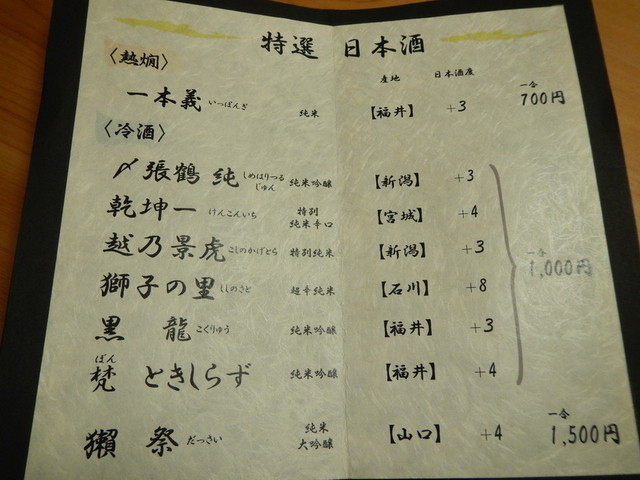 特選 日本酒
〈熱燗〉
産地 日本酒度
一本義 いっぽんぎ 純米 【福井】 +3 一合 700円
〈冷酒〉
〆張鶴 純 しめはりつる じゅん 純米吟醸 【新潟】 +3
乾坤一 けんこんいち 特別 純米辛口 【宮城】 +4
越乃景虎 こしのかげとら 特別純米 【新潟】 +3
一合 1,000円
獅子の里 ししのさと 超辛純米 【石川】 +8
黒龍 こくりゅう 純米吟醸 【福井】 +3
梵 ぼん ときしらず 純米吟醸 【福井】 +4
獺祭 だっさい 純米 大吟醸 【山口】 +4 一合 1,500円